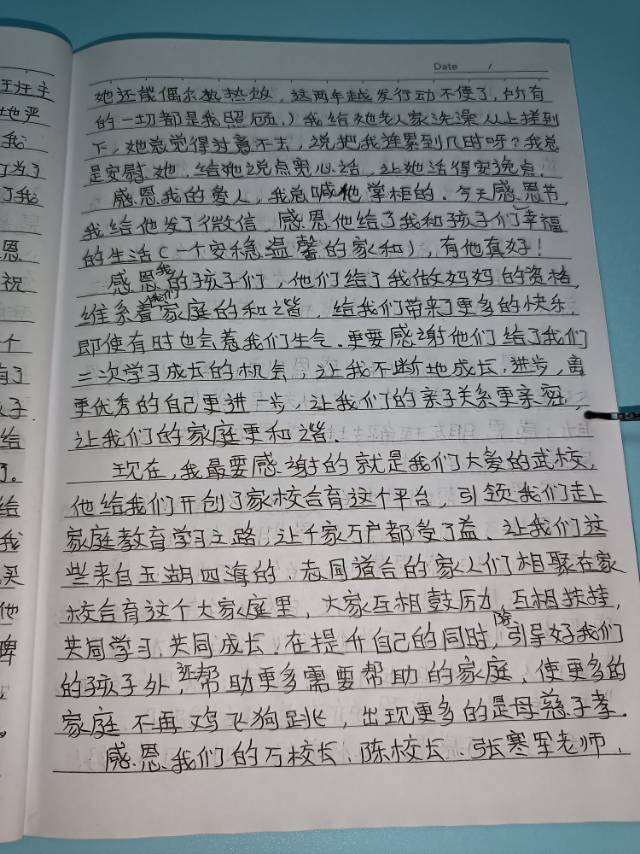 Date /
她还能偶尔热热饭，这两年越发行动不便了，所有
的一切都是我照顾，）我给她老人家洗澡从上搓到
下，她总觉得过意不去，说把我连累到几时呀？我总
是安慰她，给她说点宽心话，让她活得安逸点。
感恩我的爱人，我总喊他掌柜的。今天感恩节
我给他发了微信，感恩他给了我和孩子们幸福
的生活（一个安稳温馨的家和），有他真好！
感恩我的孩子们，他们给了我做妈妈的资格，
维系着我们家庭的和谐，给我们带来了更多的快乐，
即使有时也会惹我们生气。更要感谢他们给了我们
二次学习成长的机会，让我不断地成长，进步，离
更优秀的自己更进一步，让我们的亲子关系更亲密，
让我们的家庭更和谐。
现在，我最要感谢的就是我们大爱的武校，
他给我们开创了家校合育这个平台，引领我们走上
家庭教育学习之路，让千家万户都受了益、让我们这
些来自五湖四海的、志同道合的家人们相聚在家
校合育这个大家庭里，大家互相鼓励，互相扶持，
共同学习，共同成长，在提升自己的同时，除引导好我们
的孩子外，还帮助更多需要帮助的家庭，使更多的
家庭不再鸡飞狗跳，出现更多的是母慈子孝。
感恩我们的万校长、陈校长、张寒军老师，
汪圩乡
地严
我
了当了
了我
恩
祝
个
有了
孩子
给
了。
给
我
买
他
脾